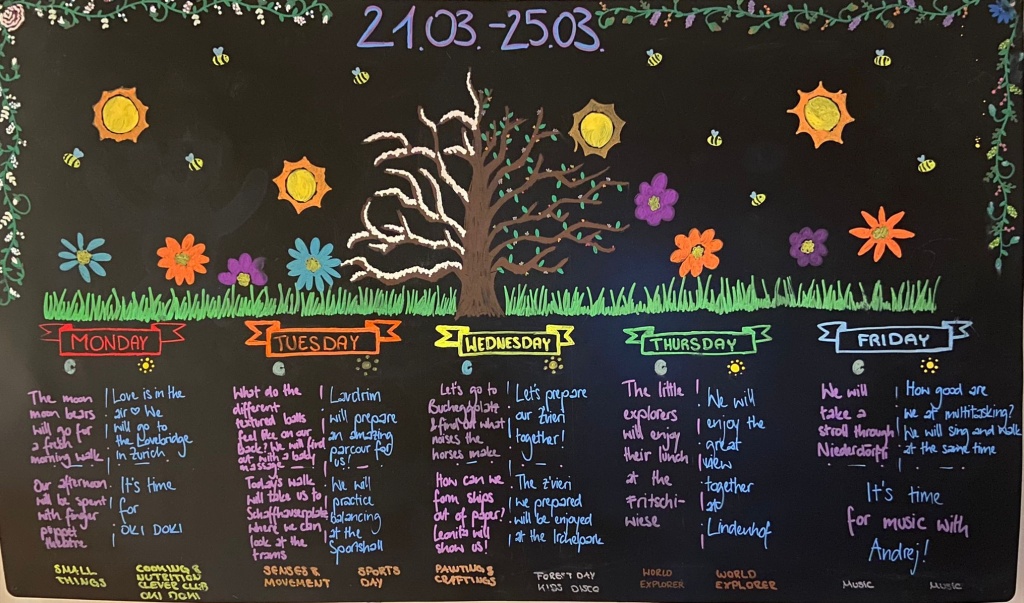 21.03.-25.03.
MONDAY
The moon
moon bears
will go for
a fresh
morning walk
Our afternoon
will be spent
with finger
puppet
theatre
Love is in the
air We
will go to
the Lovebridge
in Zürich
It's time
for
OKI DOKI
SMALL
THINGS
COOKING &
NUTRITION
CLEVER CLUB
OKI DOKI
TUESDAY
What do the
different
textured balls
feel like on our
back? We will find
out with a body
massage
Today's walk
will take us to
Schaffhauserplatz
where we can
look at the
trams
Lavdrim
will prepare
an amazing
parcour for
us!
We will
practice
Balancing
at the
Sportshall
SENSES &
MOVEMENT
SPORTS
DAY
WEDNESDAY
Let's go to
Bucheggplatz
& find out what
noises the
horses make
How can we
form ships
out of paper?
Leonita will
show us!
Let's prepare
our Zvieri
together!
The Z'vieri
we prepared
will be enjoyed
at the Irchelpark
PAINTING &
CRAFTINGS
FOREST DAY
KIDS DISCO
THURSDAY
The little
explorers
will enjoy
their lunch
at the
Fritschi-
wiese
We will
enjoy the
great
view
together
at
Lindenhof
WORLD
EXPLORER
WORLD
EXPLORER
FRIDAY
We will
take a
stroll through
Niederdorf!
How good are
we at multitasking?
We will sing and walk
at the same time
It's time
for music with
Andrej!
MUSIC
MUSIC